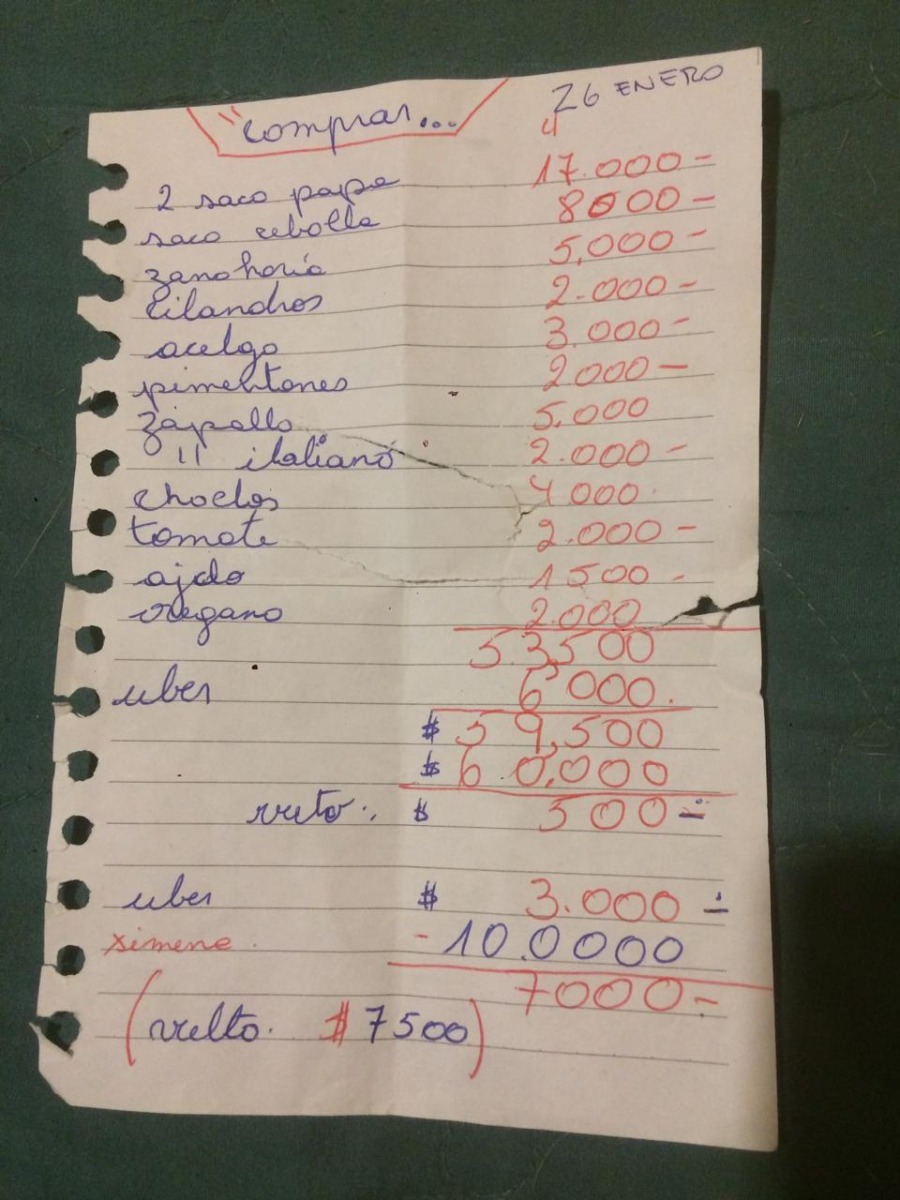 "comprar... 26 ENERO
4
2 saco papa 17.000-
saco cebolla 8000-
zanahoria 5,000-
cilandros 2.000-
acelga 3.000-
pimentones 2.000-
zapallo 5.000
11 italiano 2.000-
choclos 4.000.
tomate 2.000-
ajo 1500-
oregano 2.000
53,500
uber 6,000.
$ 59,500
$ 60,000
vuelto: $ 500=
uber $ 3.000-
ximena. - 10.0000
7000-
(vuelto. $7500)